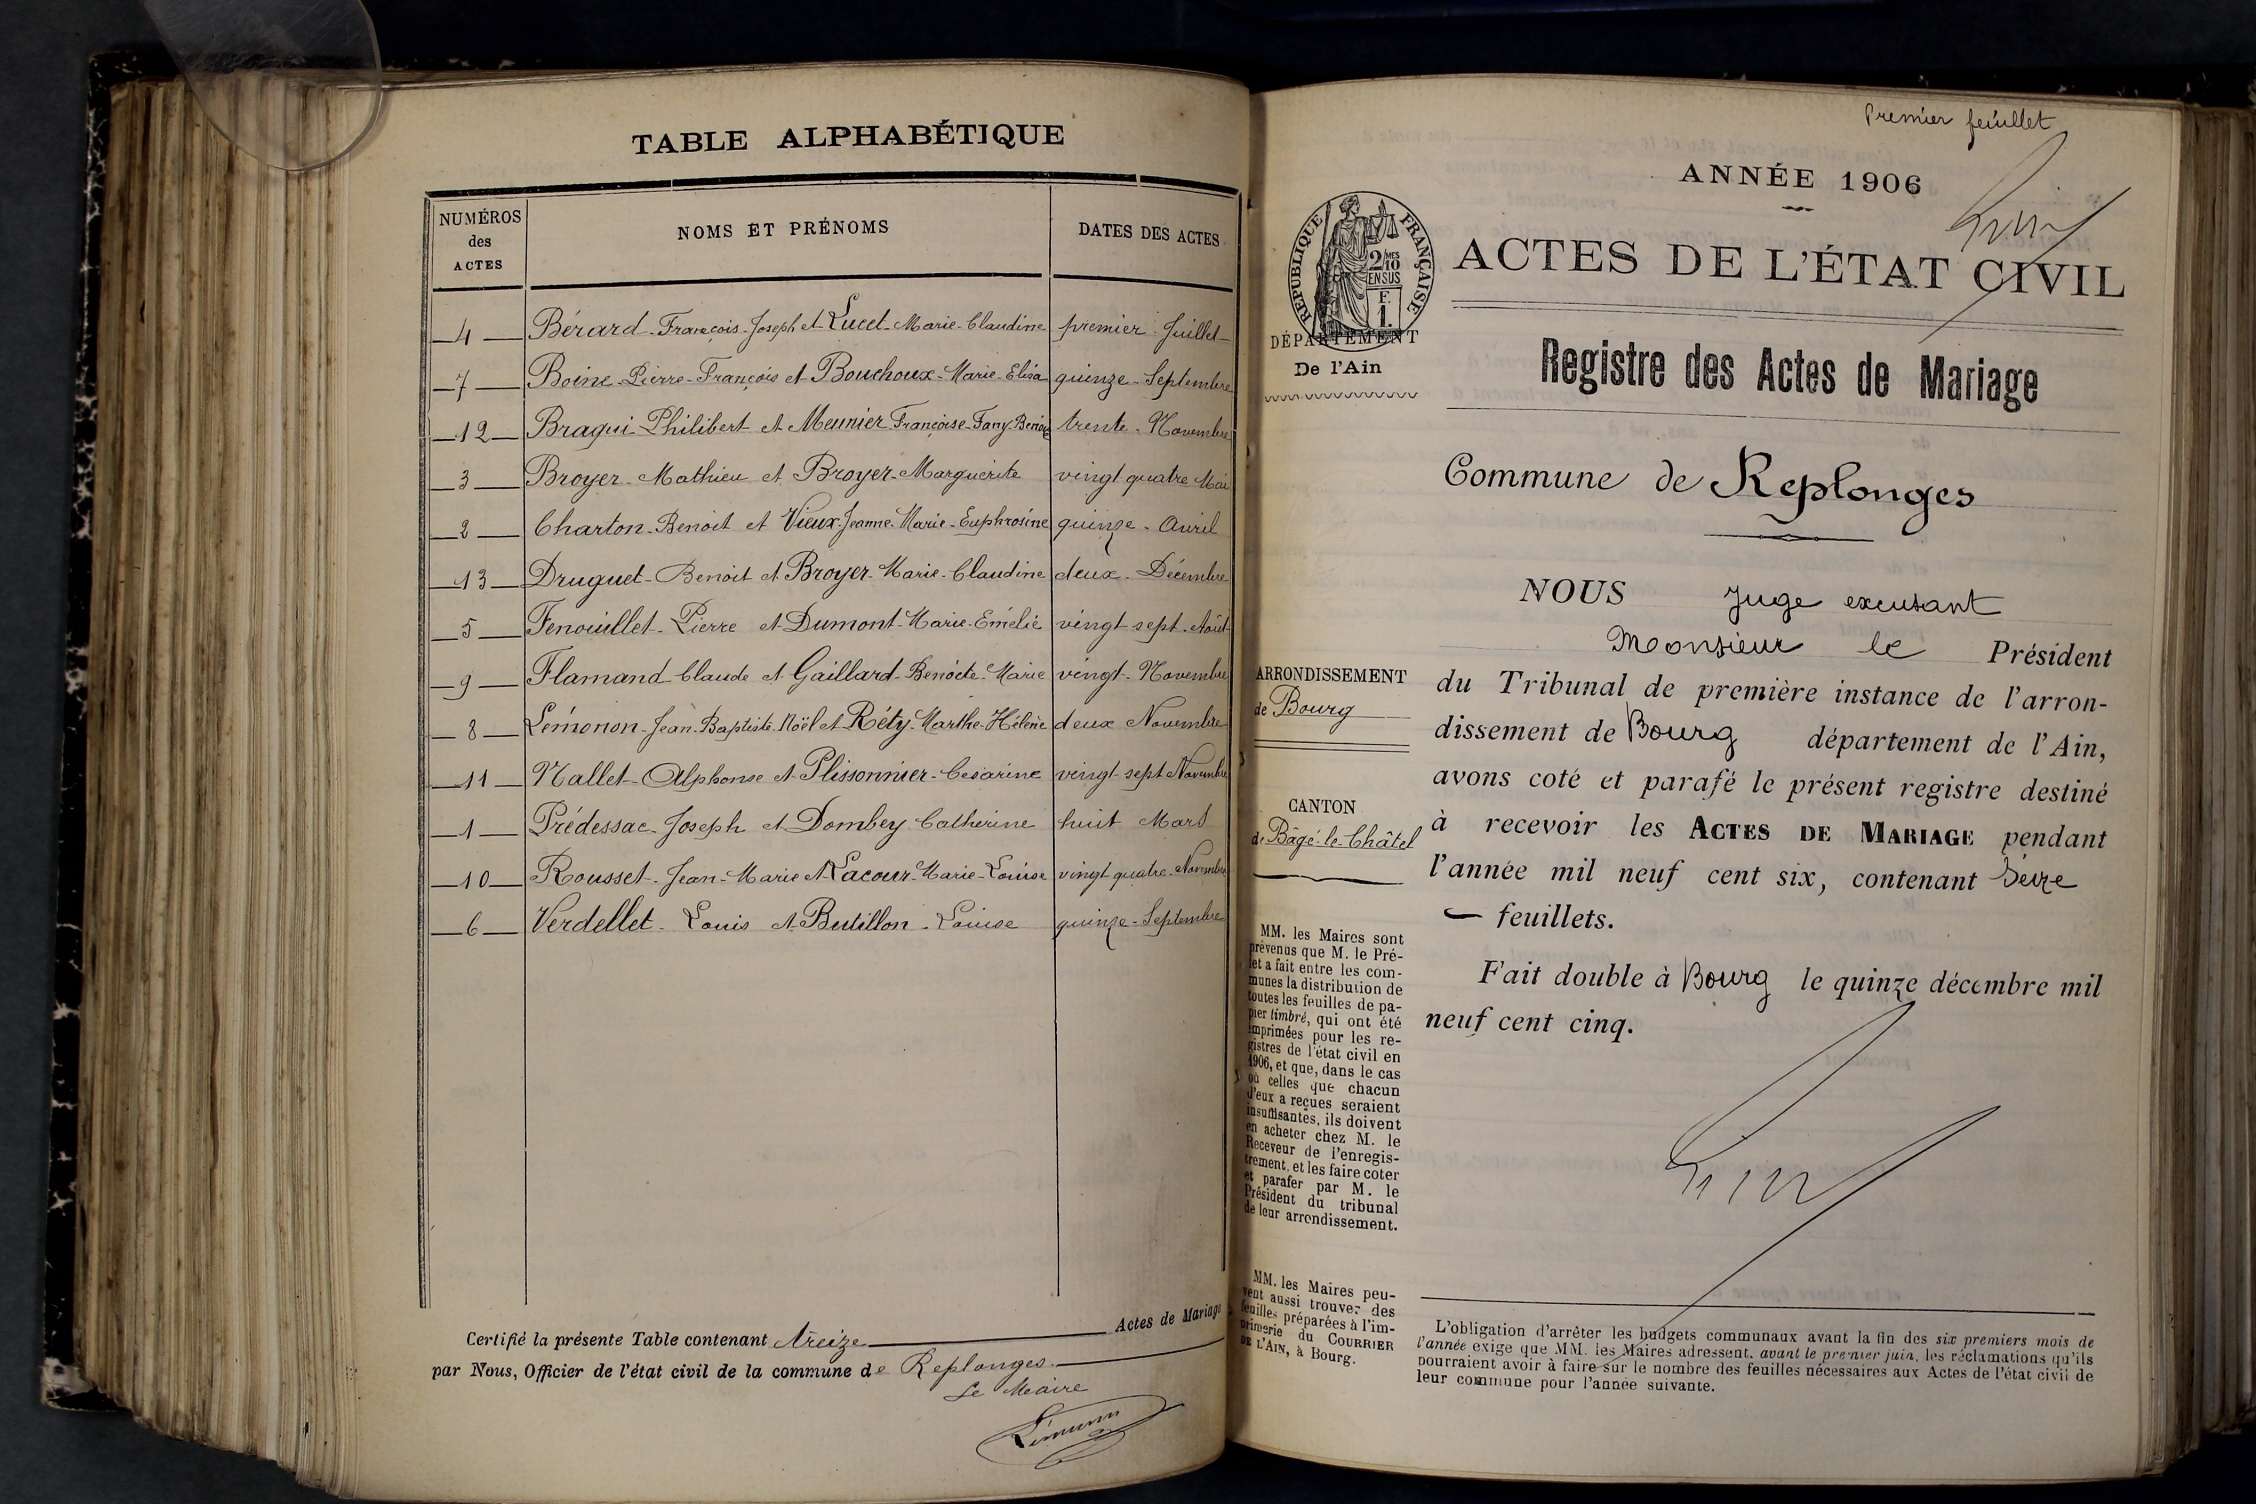 TABLE ALPHABÉTIQUE
NUMÉROS des ACTES
NOMS ET PRÉNOMS
DATES DES ACTES
4 Bérard François-Joseph et Lucet Marie-Claudine premier Juillet
7 Boine Pierre-François et Bouchoux Marie-Elisa quinze Septembre
12 Bragui Philibert et Meunier Françoise-Fany-Benoite trente Novembre
3 Broyer Mathieu et Broyer Marguerite vingt quatre Mai
2 Charton Benoit et Vieux Jeanne-Marie-Euphrosine quinze Avril
13 Druguet Benoit et Broyer Marie-Claudine deux Décembre
5 Fenouillet Pierre et Dumont Marie-Emélie vingt sept Août
9 Flamand Claude et Gaillard Benoîte-Marie vingt Novembre
8 Lémonon Jean-Baptiste-Noël et Réty Marthe-Hélène deux Novembre
11 Nallet Alphonse et Plissonnier Césarine vingt sept Novembre
1 Prédessac Joseph et Dombey Catherine huit Mars
10 Rousset Jean-Marie et Lacour Marie-Louise vingt quatre Novembre
6 Verdellet Louis et Butillon Louise quinze Septembre
Certifié la présente Table contenant treize Actes de Mariage
par Nous, Officier de l'état civil de la commune de Replonges.
Le Maire
Lémonon
Premier feuillet
ANNÉE 1906
RÉPUBLIQUE FRANÇAISE
2/10 MES
EN SUS
F.
1.
ACTES DE L'ÉTAT CIVIL
DÉPARTEMENT
De l'Ain
Registre des Actes de Mariage
Commune de Replonges
NOUS Juge excusant
Monsieur le Président
du Tribunal de première instance de l'arron-
dissement de Bourg département de l'Ain,
avons coté et parafé le présent registre destiné
à recevoir les ACTES DE MARIAGE pendant
l'année mil neuf cent six, contenant seize
feuillets.
Fait double à Bourg le quinze décembre mil
neuf cent cinq.
ARRONDISSEMENT
de Bourg
CANTON
de Bâgé-le-Châtel
MM. les Maires sont
prévenus que M. le Pré-
fet a fait entre les com-
munes la distribution de
toutes les feuilles de pa-
pier timbré, qui ont été
imprimées pour les re-
gistres de l'état civil en
1906, et que, dans le cas
où celles que chacun
d'eux a reçues seraient
insuffisantes, ils doivent
en acheter chez M. le
Receveur de l'enregis-
trement, et les faire coter
et parafer par M. le
Président du tribunal
de leur arrondissement.
MM. les Maires peu-
vent aussi trouver des
feuilles préparées à l'im-
primerie du COURRIER
DE L'AIN, à Bourg.
L'obligation d'arrêter les budgets communaux avant la fin des six premiers mois de
l'année exige que MM. les Maires adressent, avant le premier juin, les réclamations qu'ils
pourraient avoir à faire sur le nombre des feuilles nécessaires aux Actes de l'état civil de
leur commune pour l'année suivante.